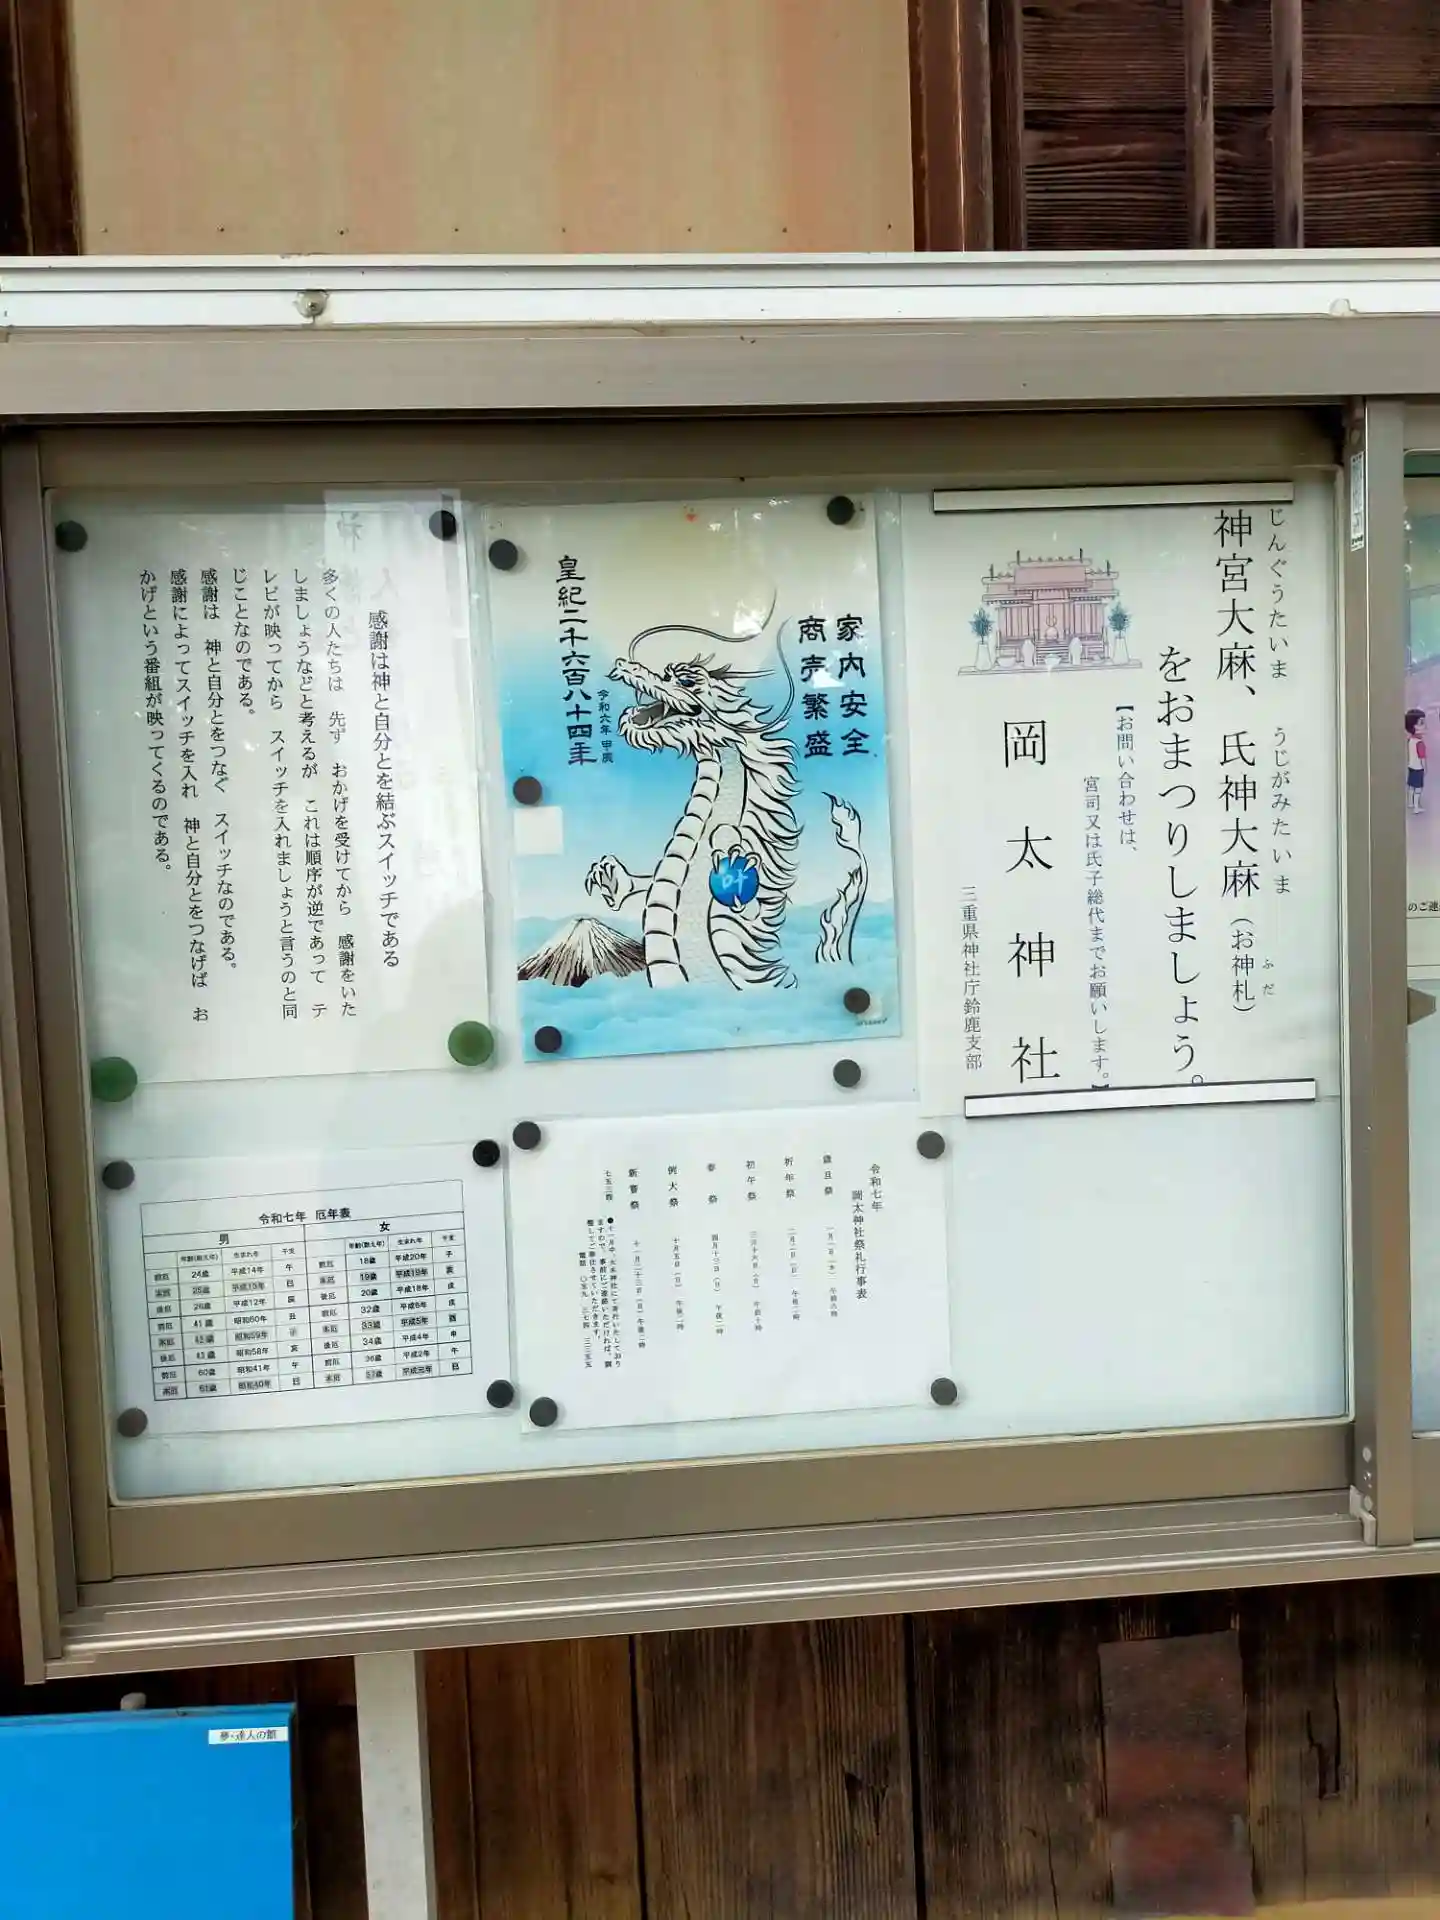 じんぐうたいま　うじがみたいま
神宮大麻、氏神大麻（お神札）
ふだ
をおまつりしましょう。
【お問い合わせは、
宮司又は氏子総代までお願いします。】
岡太神社
三重県神社庁鈴鹿支部
家内安全
商売繁盛
叶
令和六年 甲辰
皇紀二千六百八十四年
感謝は神と自分とを結ぶスイッチである
多くの人たちは　先ず　おかげを受けてから　感謝をいた
しましょうなどと考えるが　これは順序が逆であって　テ
レビが映ってから　スイッチを入れましょうと言うのと同
じことなのである。
感謝は　神と自分とをつなぐ　スイッチなのである。
感謝によってスイッチを入れ　神と自分とをつなげば　お
かげという番組が映ってくるのである。
令和七年
岡太神社祭礼行事表
歳旦祭　一月一日（水）　午前〇時
祈年祭　二月二日（日）　午後二時
初午祭　三月十六日（日）　午前十時
春祭　四月十三日（日）　午後二時
例大祭　十月五日（日）　午後二時
新嘗祭　十一月二十三日（日）午後二時
七五三詣　●十一月中、火水神社にて斎行いたしており
ますので、事前にご連絡いただければ、調
整してご奉仕させていただきます。
電話　〇五九　三七四　三三五五
令和七年 厄年表
男 女
年齢(数え年) 生まれ年 干支 年齢(数え年) 生まれ年 干支
前厄 24歳 平成14年 午 前厄 18歳 平成20年 子
本厄 25歳 平成13年 巳 本厄 19歳 平成19年 亥
後厄 26歳 平成12年 辰 後厄 20歳 平成18年 戌
前厄 41歳 昭和60年 丑 前厄 32歳 平成6年 戌
本厄 42歳 昭和59年 子 本厄 33歳 平成5年 酉
後厄 43歳 昭和58年 亥 後厄 34歳 平成4年 申
前厄 60歳 昭和41年 午 前厄 36歳 平成2年 午
本厄 61歳 昭和40年 巳 本厄 37歳 平成元年 巳
夢・達人の館